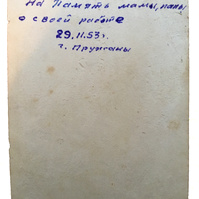 На Память мамы, папы
о своей работе
29.11.53 г.
г. Пружаны